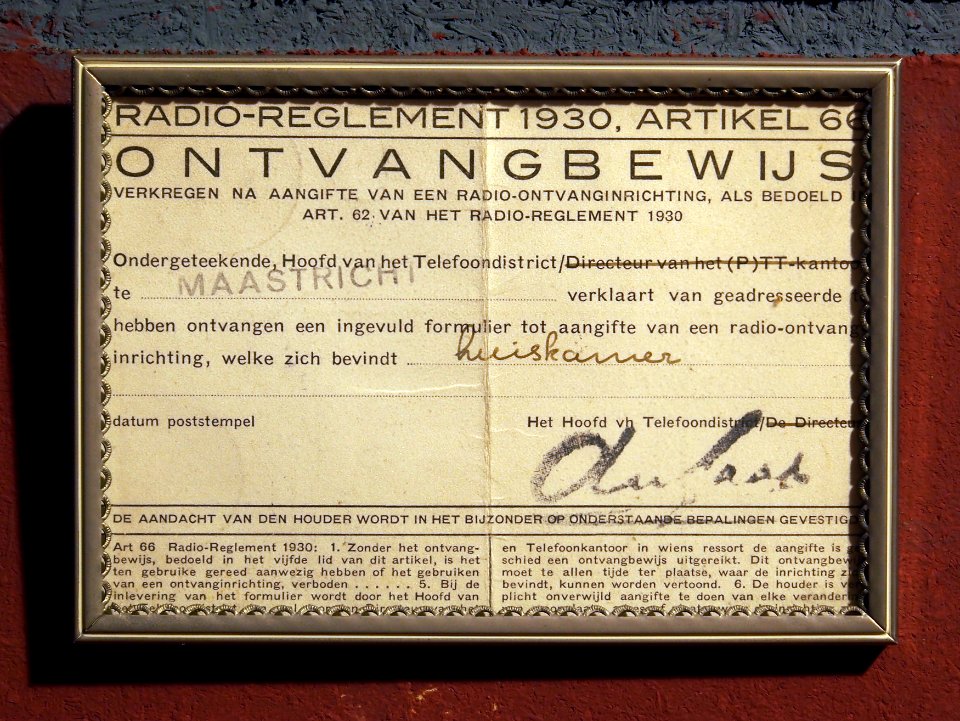 RADIO-REGLEMENT 1930, ARTIKEL 66
ONTVANGBEWIJS
VERKREGEN NA AANGIFTE VAN EEN RADIO-ONTVANGINRICHTING, ALS BEDOELD
ART. 62 VAN HET RADIO-REGLEMENT 1930
Ondergeteekende, Hoofd van het Telefoondistrict/Directeur van het (P)TT-kantoo
MAASTRICHT
te verklaart van geadresseerde
hebben ontvangen een ingevuld formulier tot aangifte van een radio-ontvang
inrichting, welke zich bevindt huiskamer
datum poststempel Het Hoofd vh Telefoondistrict/De Directeur
DE AANDACHT VAN DEN HOUDER WORDT IN HET BIJZONDER OP ONDERSTAANDE BEPALINGEN GEVESTIGD
Art 66 Radio-Reglement 1930: 1. Zonder het ontvang-
bewijs, bedoeld in het vijfde lid van dit artikel, is het
ten gebruike gereed aanwezig hebben of het gebruiken
van een ontvanginrichting, verboden ..... 5. Bij de
inlevering van het formulier wordt door het Hoofd van
en Telefoonkantoor in wiens ressort de aangifte is
schied een ontvangbewijs uitgereikt. Dit ontvangbew
moet te allen tijde ter plaatse, waar de inrichting
bevindt, kunnen worden vertoond. 6. De houder is ver
plicht onverwijld aangifte te doen van elke verandering